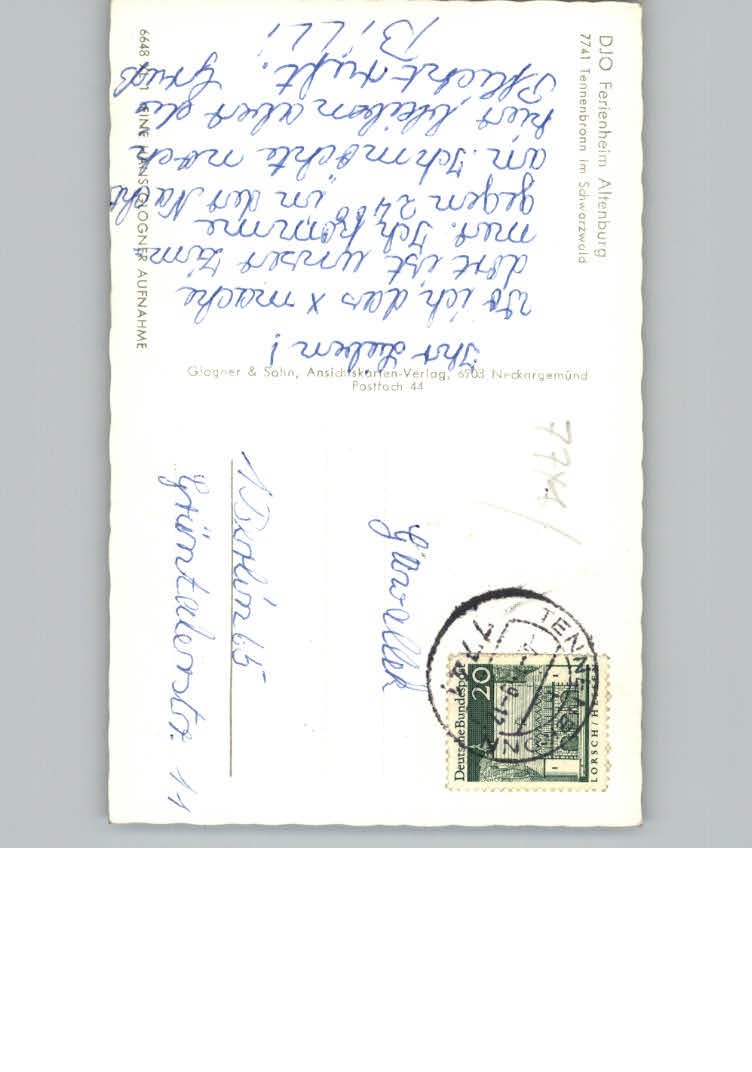 DJO Ferienheim Altenburg
7741 Tennenbronn im Schwarzwald
Ihr Lieben!
Wo ich das x mache
dort ist unser Zim
mer. Ich komme
gegen 24 00 in der Nacht
an. Ich möchte noch
hier bleiben aber die
Pflicht ruft. Gruß
Billi
6648 EINE HANS GLOGNER AUFNAHME
Glogner & Sohn, Ansichtskarten-Verlag, 6903 Neckargemünd
Postfach 44
7741
TENNENBRONN
7741
Deutsche Bundespost
20
LORSCH/HESSEN
Gawallek
1 Berlin 65
Grüntalerstr. 11